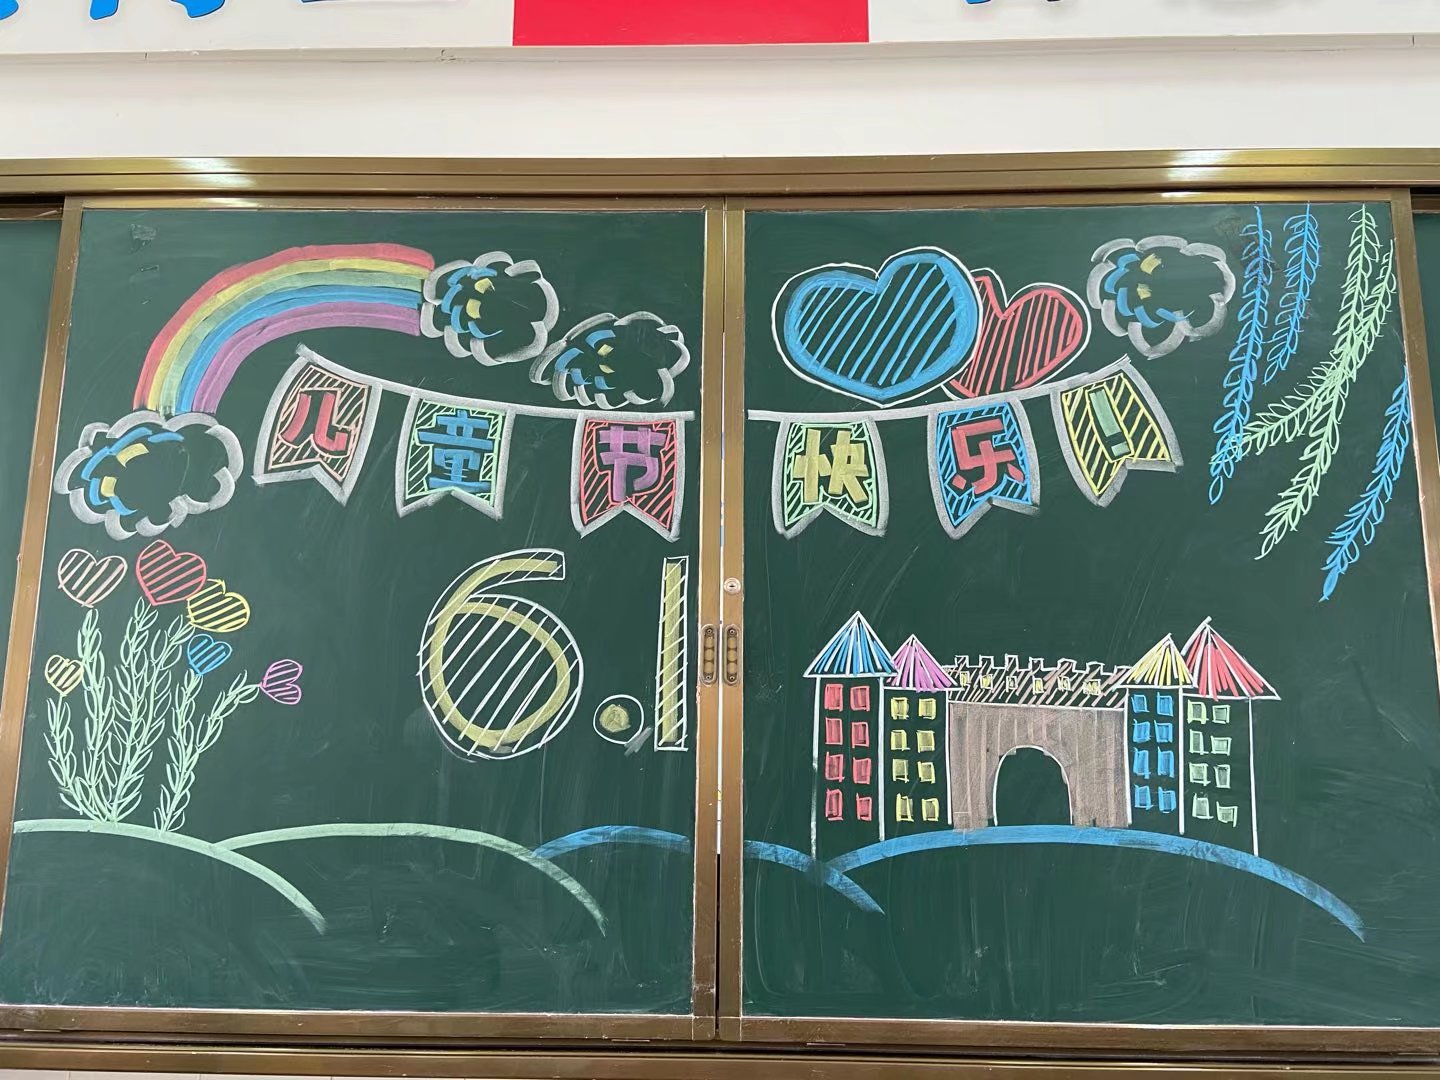 儿童节快乐!
6.1